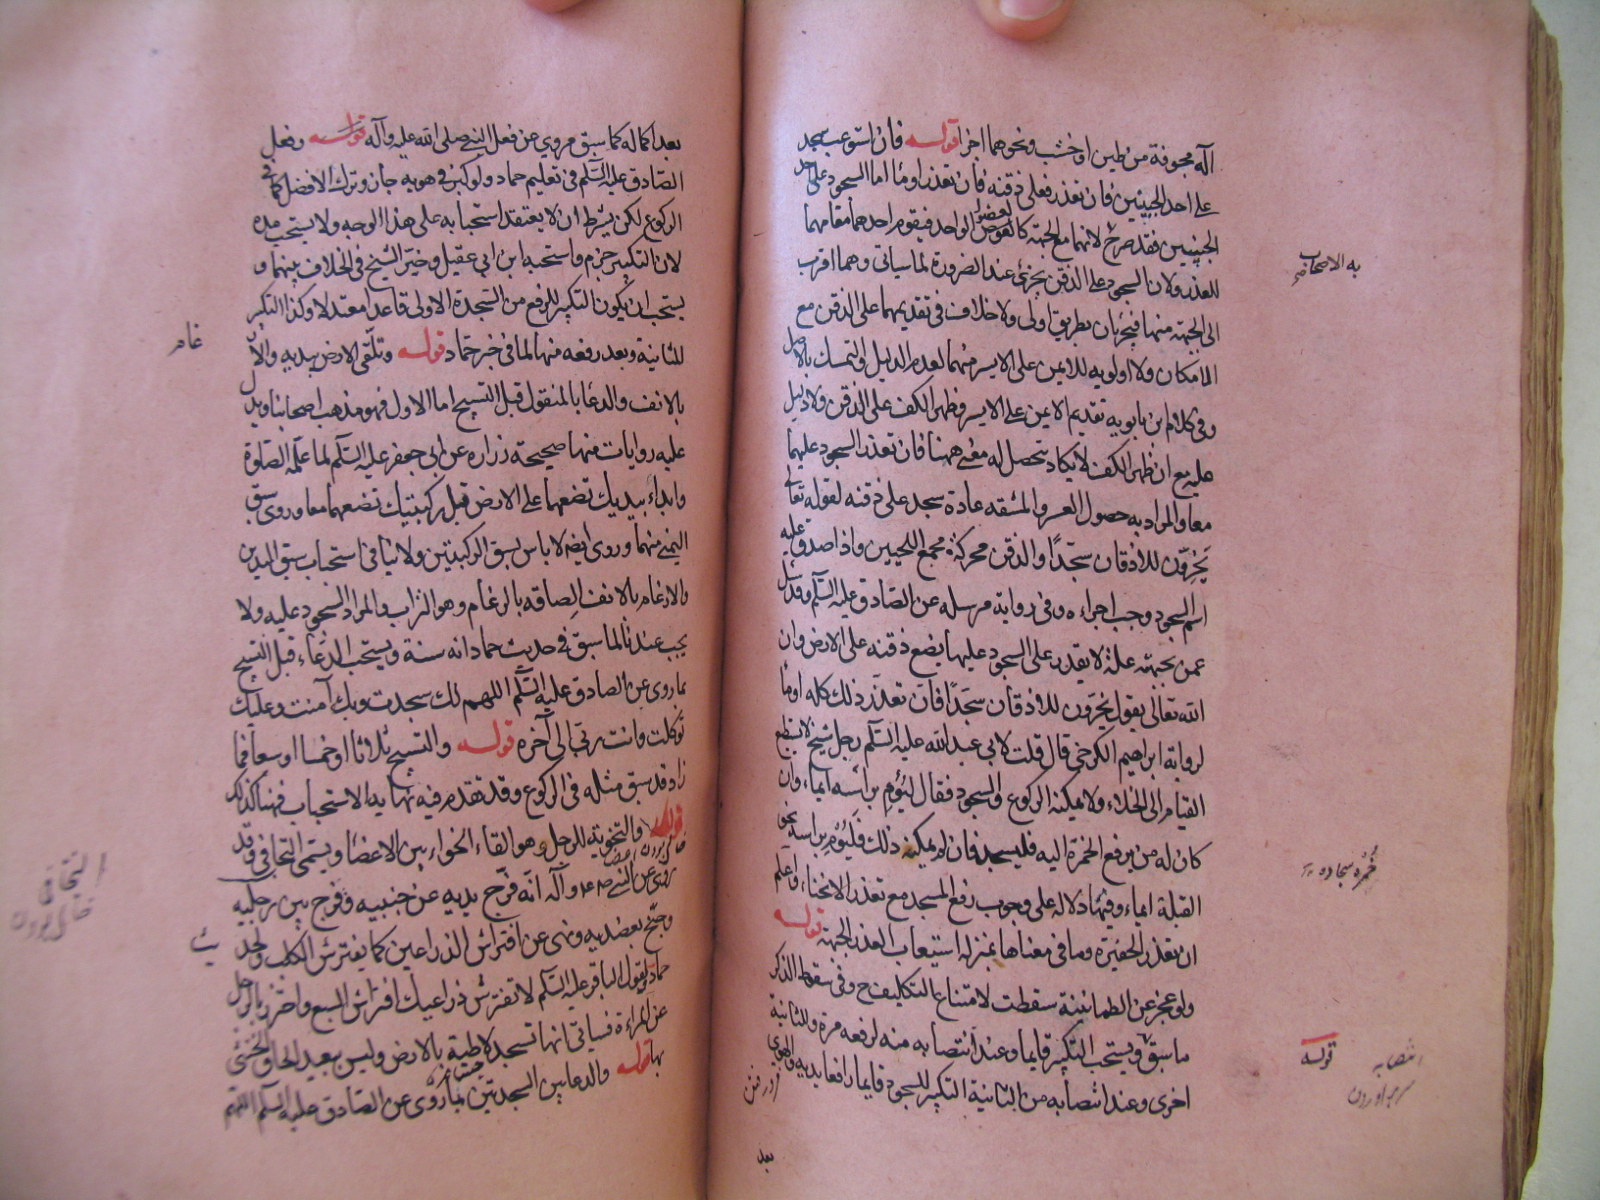 آله مجوفة من طين او خشب ونحوهما اجزا قوله فان استوعب سجد
على احد الجبينين فان تعذر فعلى ذقنه فان تعذر اومأ اما السجود على احد
الجبينين فقد صرح لانهما مع الجبهة كالعضو الواحد فيقوم احدهما مقامهما
للعذر ولان السجود على الذقن يجزئ عند الضرورة لما سياتى وهما اقرب
الى الجبهة منها فيجزيان بطريق اولى ولا خلاف فى تقديمهما على الذقن مع
الامكان ولا اولوية للايمن على الايسر منهما لعدم الدليل والتمسك بالاصل
وفى كلام ابن بابويه تقديم الايمن على الايسر وظهر الكف على الذقن ولا دليل
عليه مع ان ظهر الكف لا يكاد يتحصل له معنى ههنا فان تعذر السجود عليهما
معا والمراد به حصول العسر والمشقه عادة سجد على ذقنه لقوله تعالى
يَخِرّون للاذقان سجّدًا والذقن محركة مجمع اللحيين واذا صدق عليه
اسم السجود وجب اجزاءه وفى رواية مرسله عن الصادق عليه السلم وقد سئل
عمن بجبهته علة لا يقدر على السجود عليها يضع ذقنه على الارض وان
الله تعالى يقول يخرون للاذقان سجدًا فان تعذر ذلك كله اومأ
لرواية ابراهيم الكرخى قال قلت لابى عبد الله عليه السلم رجل شيخ لا يستطيع
القيام الى الخلاء ولا يمكنه الركوع والسجود فقال ليؤم براسه ايماء وان
كان له من يرفع الخمرة اليه فليسجد فان لم يمكنه ذلك فليؤم براسه نحو
القبلة ايماء وفيها دلاله على وجوب رفع المسجد مع تعذر الانحناء واعلم
ان تعذر الحفيرة وما فى معناها بمنزله استيعاب العذر الجبهة قوله
ولو عجز عن الطمانينة سقطت لامتناع التكليف ح وفى سقوط الذكر
ما سبق ويستحب التكبير قايما وعند انتصابه منه لرفعه مرة وللثانية
اخرى وعند انتصابه من الثانية التكبير للسجود قايما رافعا يديه والهوى
بعد
به الاصحاب
خمره سجاده
قوله
انتصابه
بعد اكماله كما سبق مروي عن فعل النبي صلى الله عليه وآله قوله وفعل
الصادق عليه السلم فى تعليم حماد ولو كبر فى هويه جاز وترك الافضل كما فى
الركوع لكن بشرط ان لا يعتقد استحبابه على هذا الوجه ولا يستحب مده
لان التكبير جزم واستحبه ابن ابي عقيل وخير الشيخ فى الخلاف بينهما و
يستحب ان يكون التكبير للرفع من السجدة الاولى قاعدا معتدلا وكذا التكبير
للثانية وبعد رفعه منها لما فى خبر حماد قوله وتلقى الارض بيديه والارغام
بالانف والدعا بالمنقول قبل التسبيح اما الاول فهو مذهب اصحابنا ويدل
عليه روايات منها صحيحة زراره عن ابى جعفر عليه السلم لما علمه الصلوة
وابداء بيديك تضعهما على الارض قبل ركبتيك تضعهما معا وروى سبق
اليمنى منهما وروى ايضا لا باس بسبق الركبتين ولا ينافى استحباب سبق اليدين
والارغام بالانف الصاقه بالرغام وهو التراب والمراد السجود عليه ولا
يجب عندنا لما سبق فى حديث حماد انه سنة ويستحب الدعاء قبل التسبيح
بما روى عن الصادق عليه السلم اللهم لك سجدت وبك آمنت وعليك
توكلت وانت ربى الى آخره قوله والتسبيح ثلاثا او خمسا او سبعا فما
زاد قد سبق مثله فى الركوع وقد تقدم فيه نهاية الاستحباب فهنا كذلك
قوله والتخوية للرجل وهو القاء الخواء بين الاعضا ويسمى التجافى وقد
روى عن النبي ص ع وآله انه فرّج يديه عن جنبيه وفرج بين رجليه
وجنّح بعضديه ونهى عن افتراش الذراعين كما يفترش الكلب ولحد
حماد ولقول الباقر عليه السلم لا تفترش ذراعيك افتراش السبع واحترز بالرجل
عن المراءة فسياتى انها تسجد لاطية بالارض وليس ببعيد الحاق الخنثى
بها قوله والدعا بين السجدتين بما روى عن الصادق عليه السلم اللهم
غام
التجافى